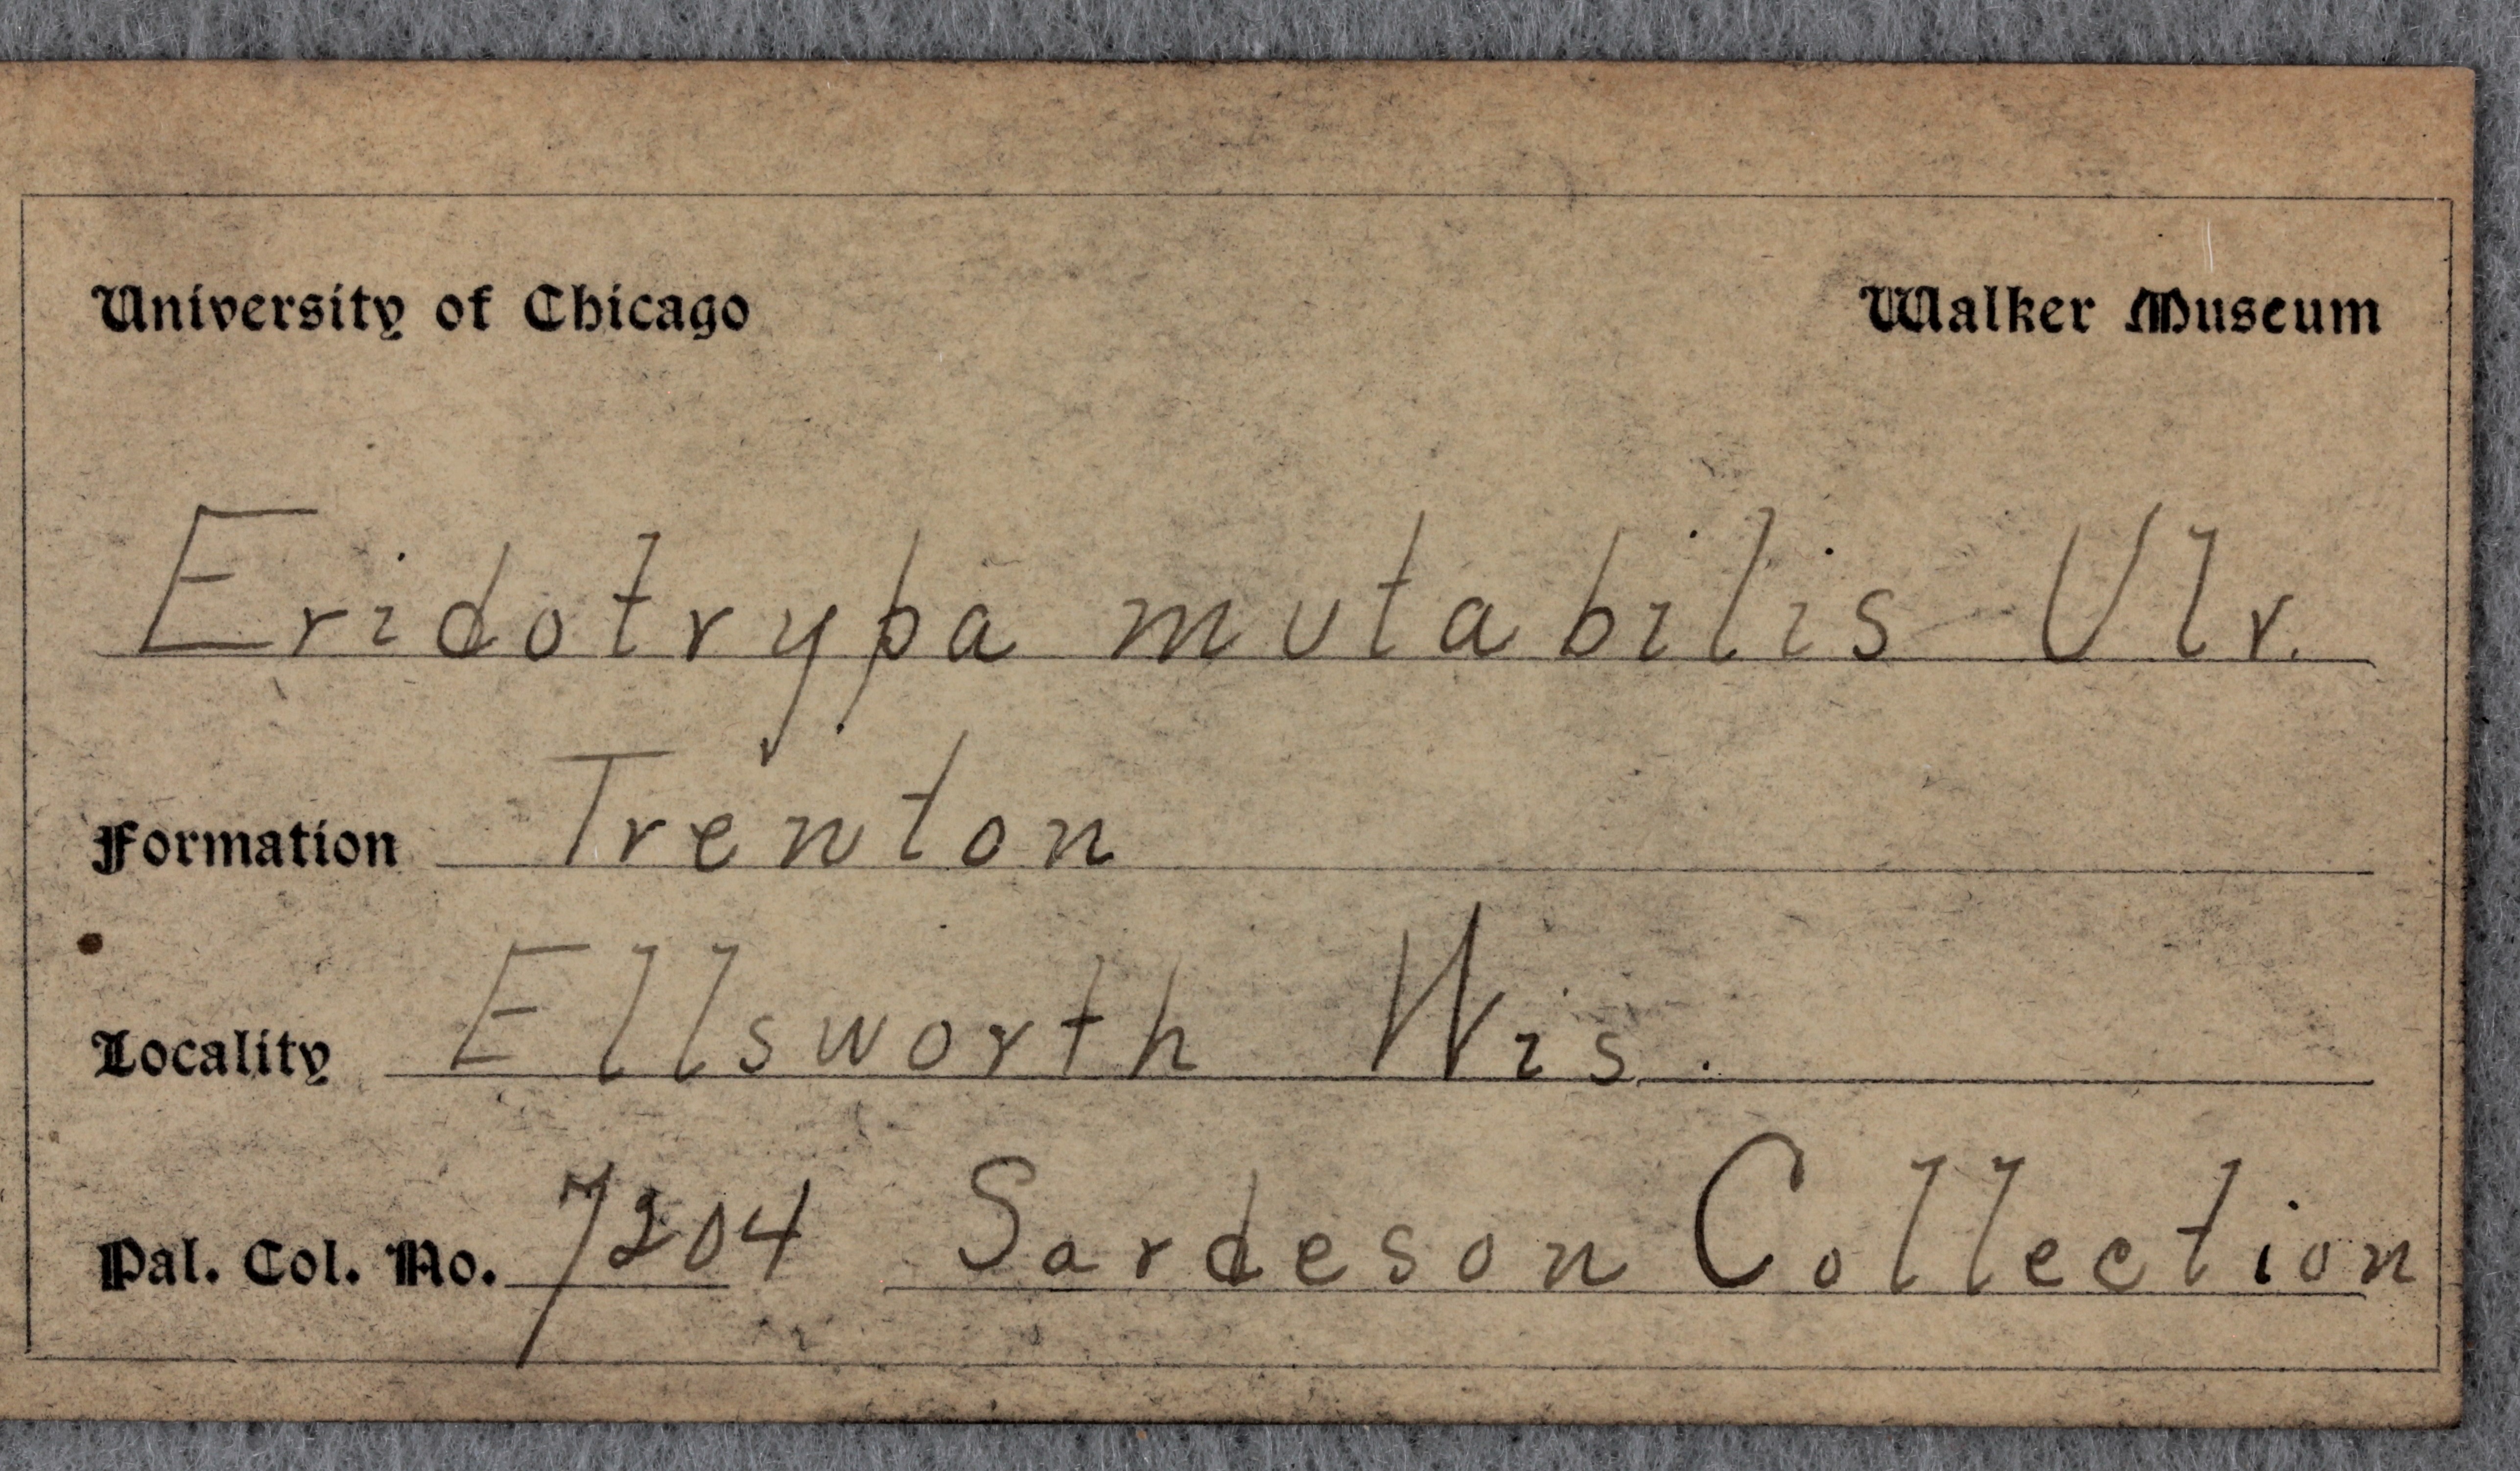 University of Chicago Walker Museum
Eridotrypa mutabilis Ulr.
Formation Trenton
Locality Ellsworth Wis.
Pal. Col. No. 7204 Sardeson Collection